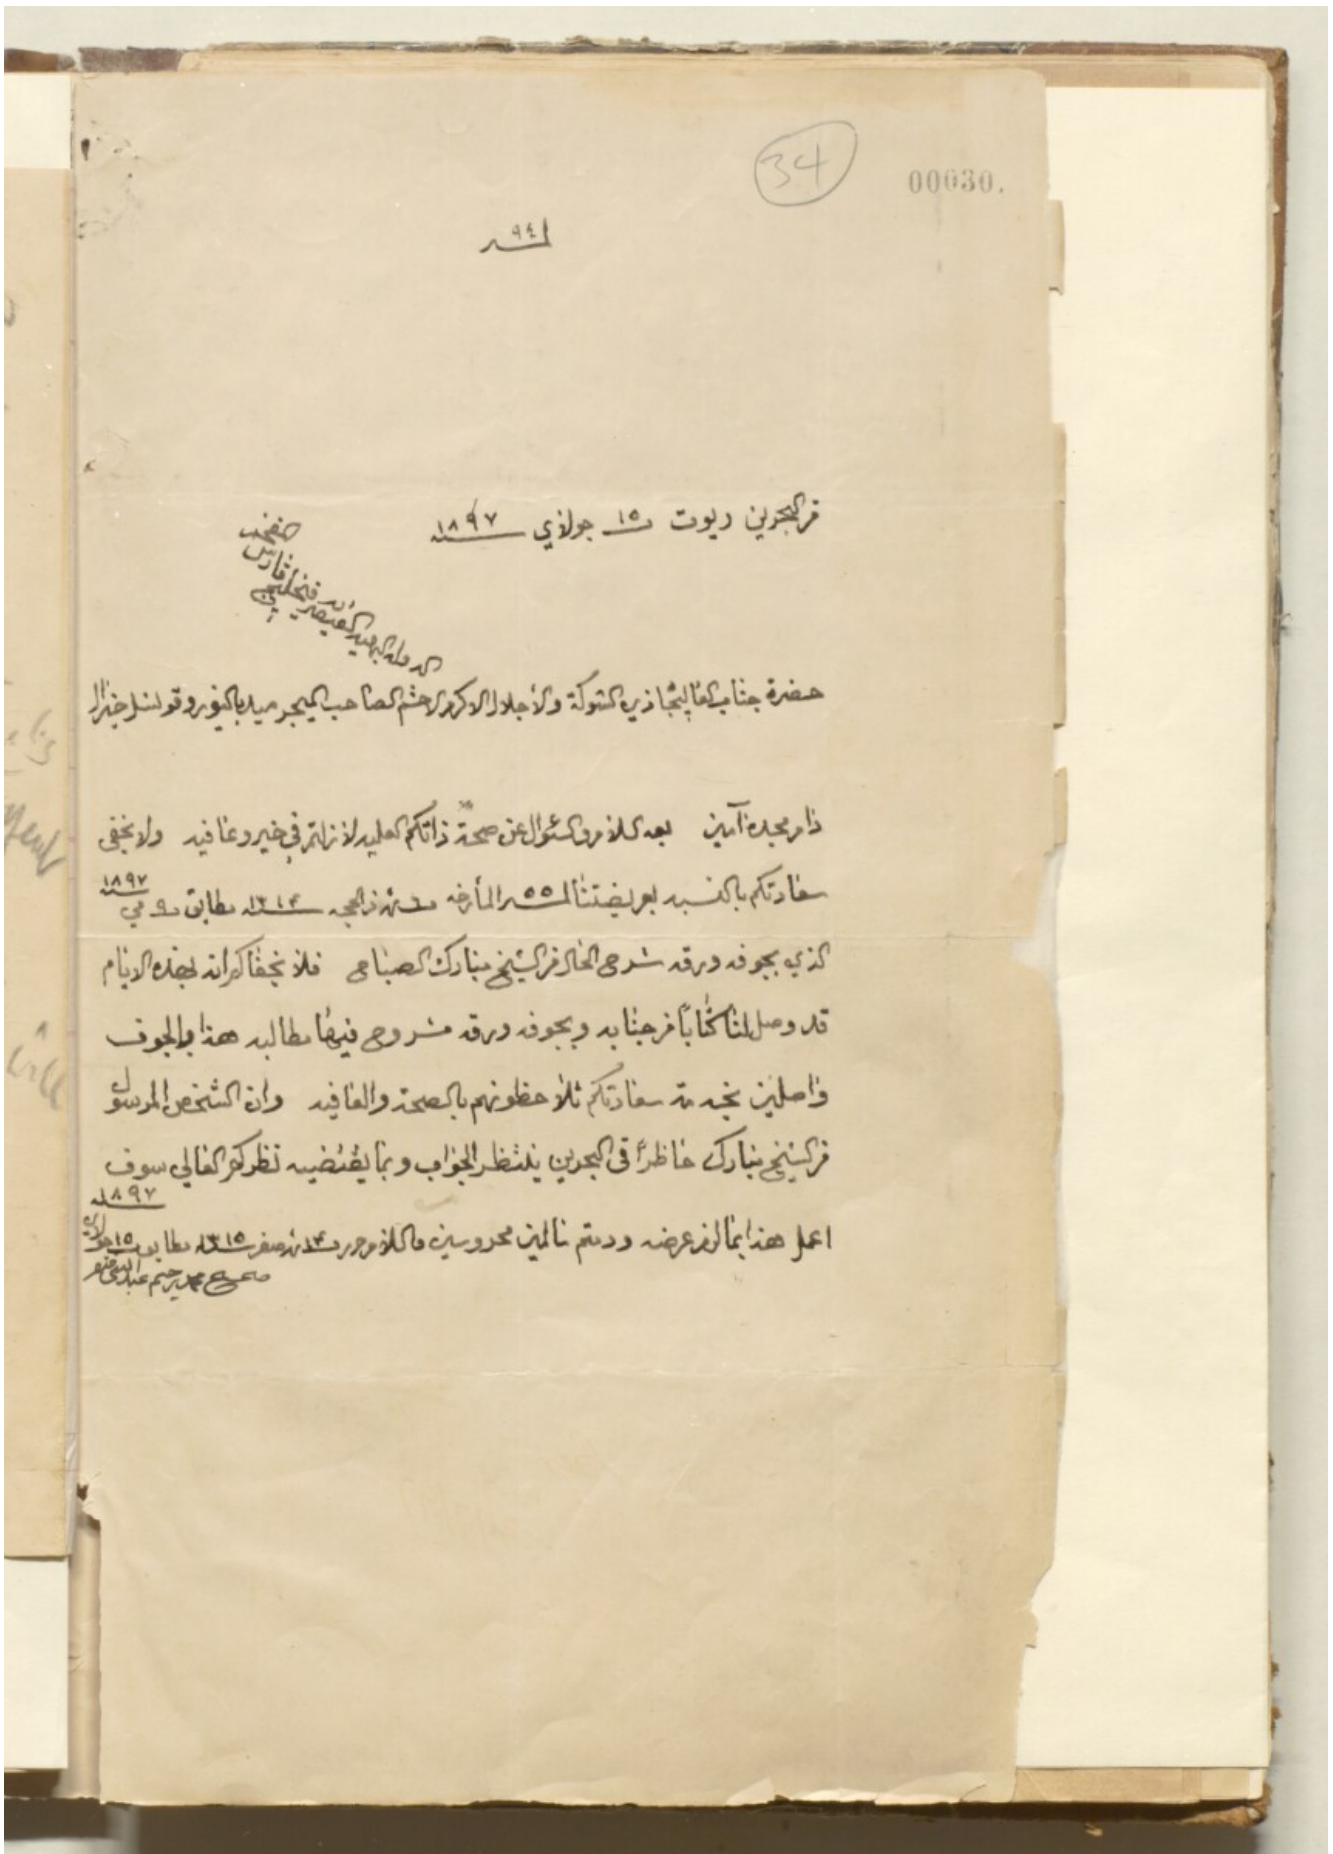 34
00030.
نمبر ٩٤
من البحرين ريوت ١٥ جولاي سنة ١٨٩٧
الدولة البهية القيصرية في خليج فارس
حضرة جناب العاليجاه ذي الشوكة والأجلال الاكرم الاحشم الصاحب الميجر ميد باليوز وقونسل جنرال
دام مجده آمين بعد السلام والسئوال عن صحة ذاتكم العليه لازلتم في خير وعافيه ولا يخفى
سعادتكم بالنسبه لعريضتنا نمبر ٥٥ المأرخه ذالحجه سنة ١٣١٤ مطابق مي سنة ١٨٩٧
الذي بجوفه ورقه شرح الحال من الشيخ مبارك الصباح فلا يخفاكم انه بهذه الايام
قد وصل لنا كتاباً من جنابه وبجوفه ورقه مشروح فيها مطالبه هذا بالجوف
واصلين بخدمة سعادتكم تلاحظونهم بالصحة والعافيه وان الشخص المرسول
من الشيخ مبارك حاظراً في البحرين ينتظر الجواب وبما يقتضيه نظركم العالي سوف
اعمل هذا مالزم عرضه ودمتم سالمين محروسين والسلام حرر صفر سنة ١٣١٥ مطابق ١٥ جولاي سنة ١٨٩٧
صحيح محمد رحيم عبدالنبي صفر